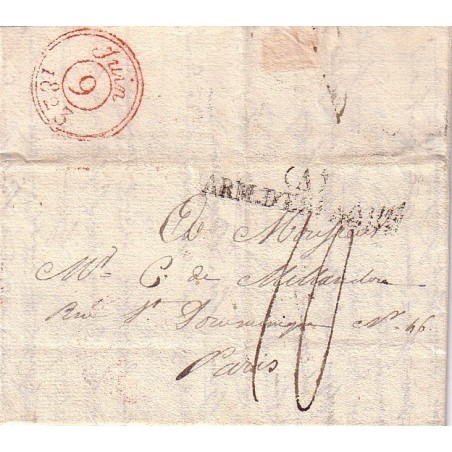 Juin
9
1823
(A)
ARM. D'ESPAGNE
A Monsieur
Mr C. de
Rue St Dominique No 46
Paris
10